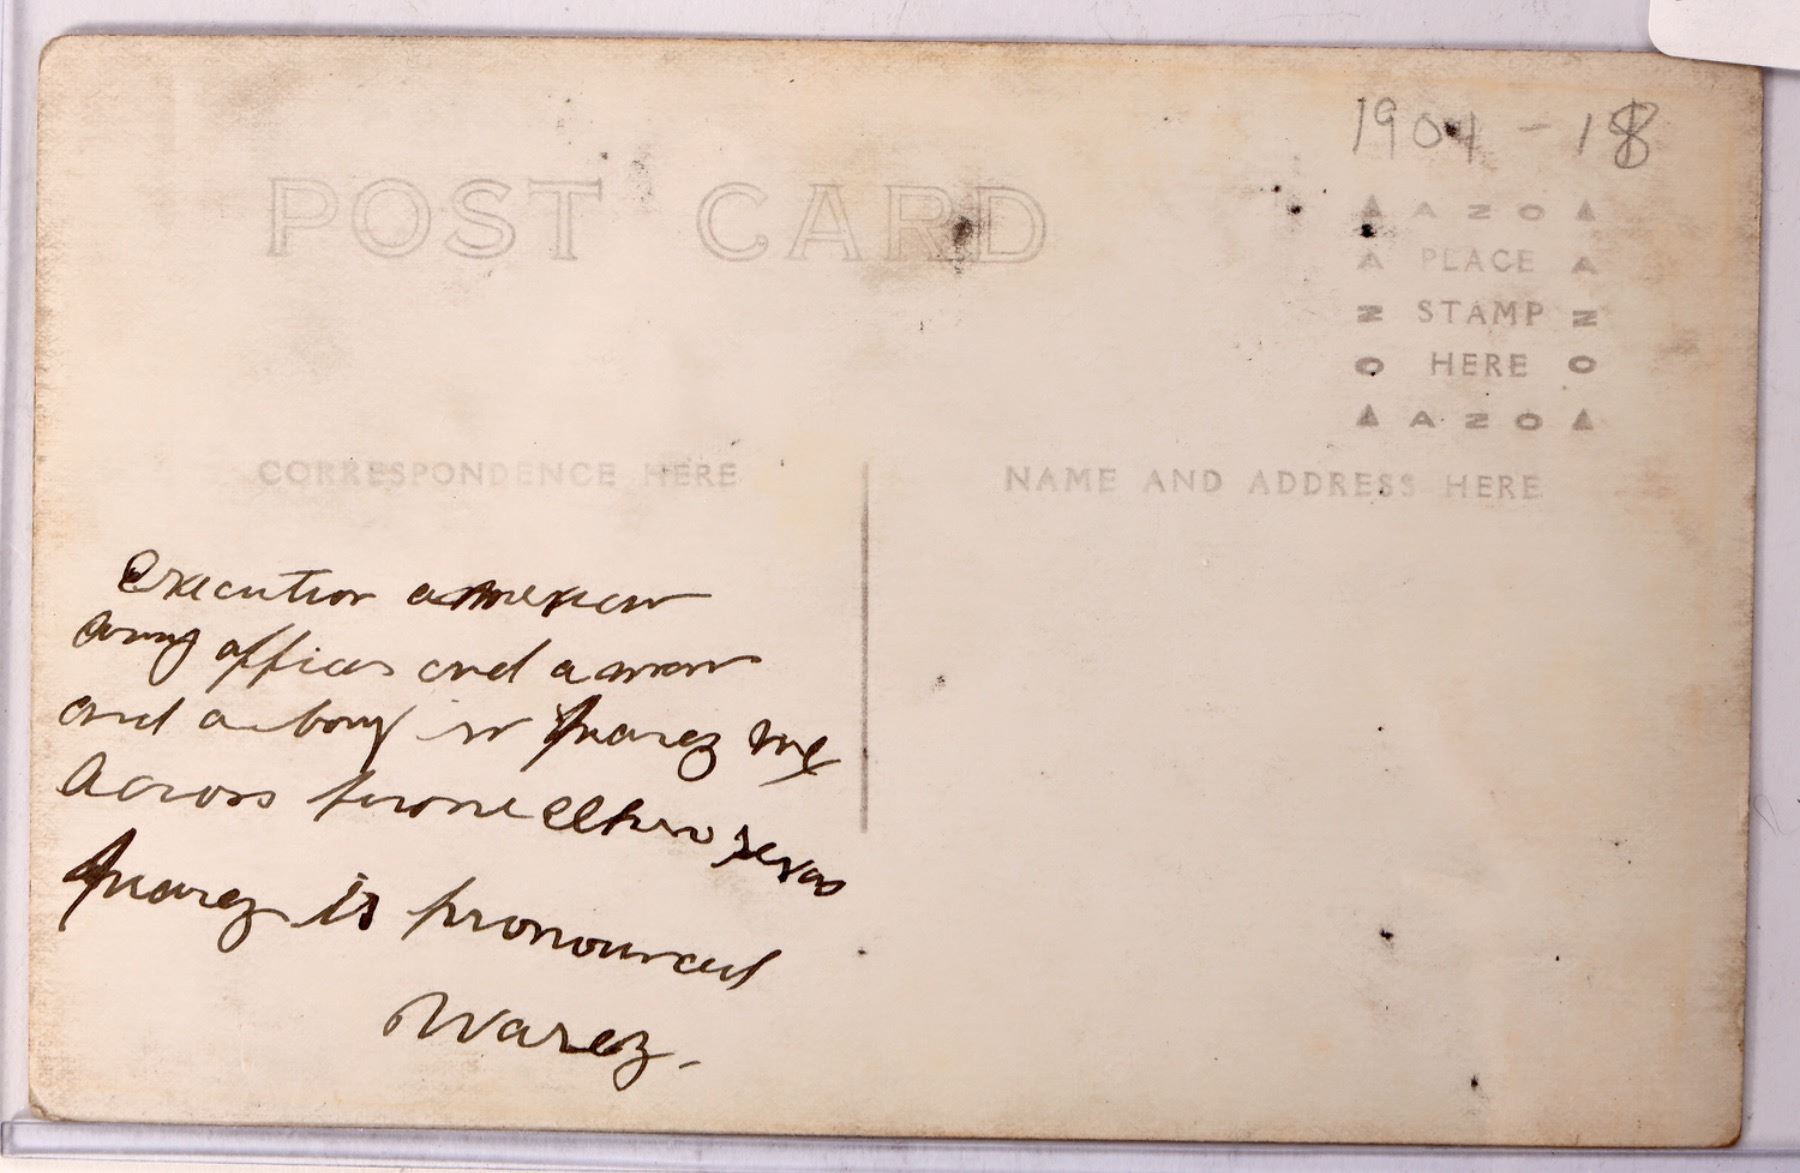 1904 - 18
POST CARD
▲ A Z O ▲
A PLACE A
Z STAMP Z
O HERE O
▲ A Z O ▲
CORRESPONDENCE HERE
NAME AND ADDRESS HERE
Execution a Mexican
army officer and a man
and a boy in Juarez Mex
Across from Elpaso Texas
Juarez is pronounced
Warez.